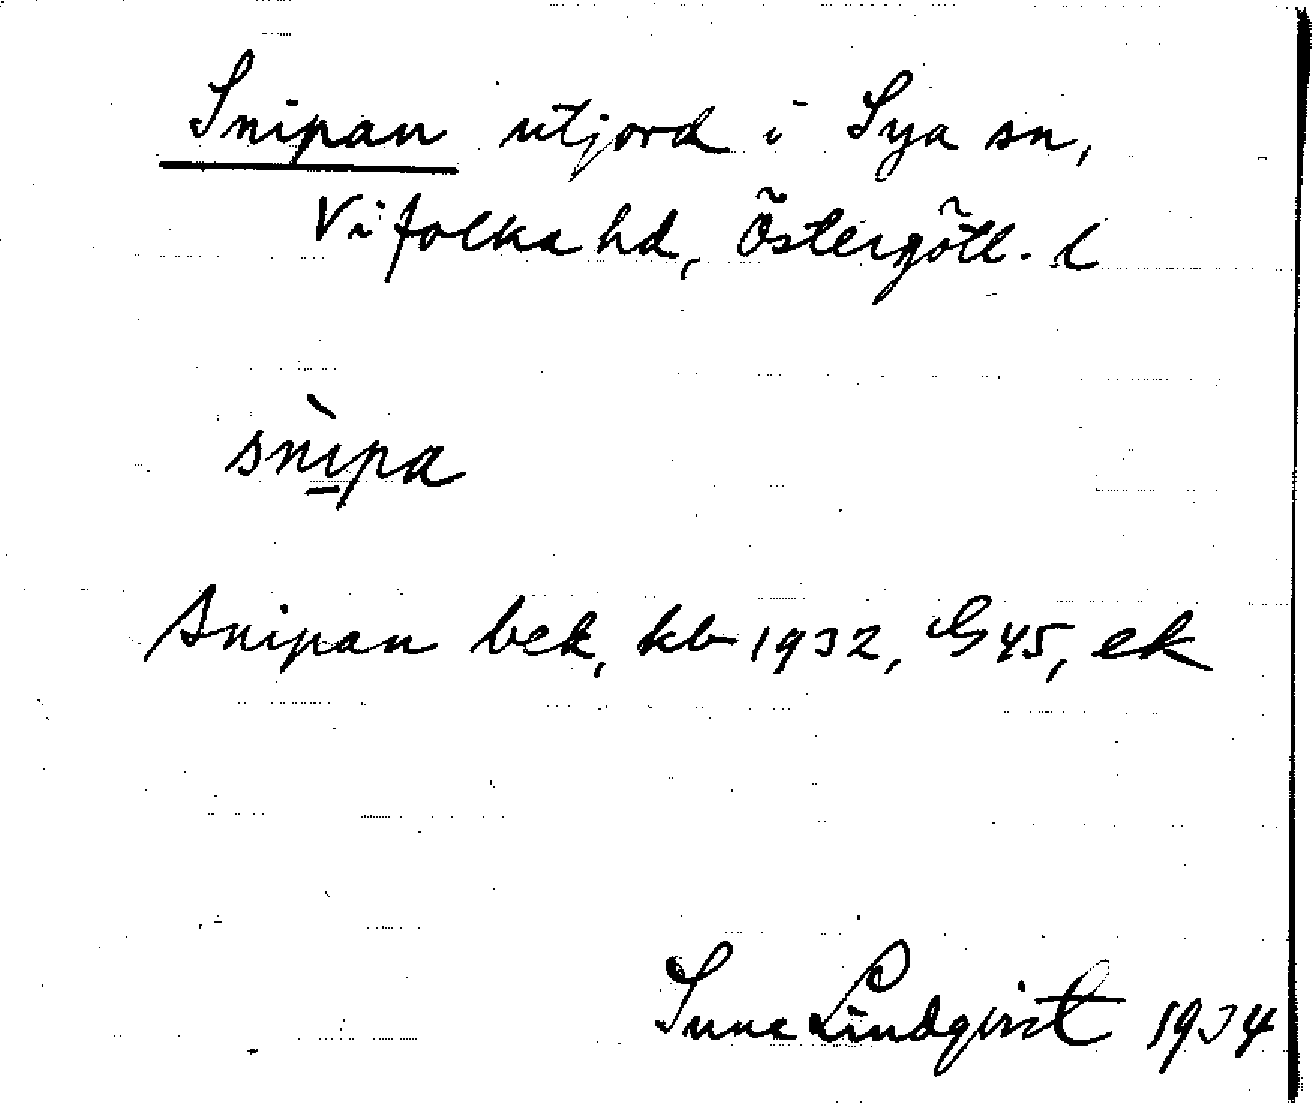 Snipan utjord i Sya sn,
Vifolka hd, Östergötl. l
snìpa
Snipan bek, kb 1932, G45, ek
Sune Lindqvist 1934